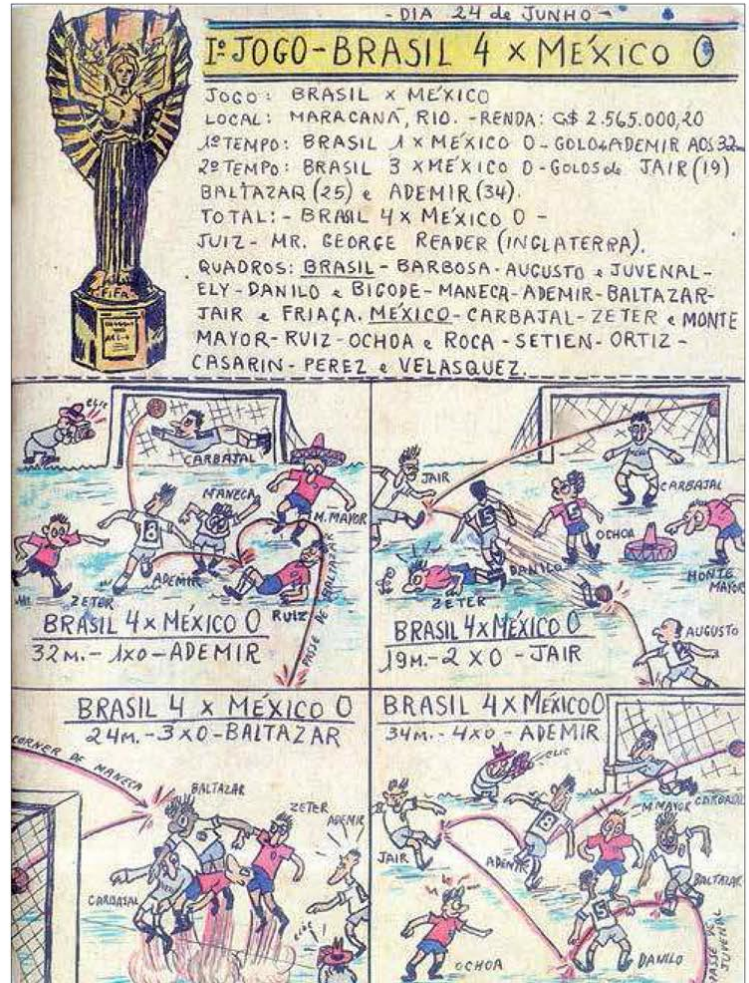 - DIA 24 de JUNHO -
1º JOGO - BRASIL 4 x MÉXICO 0
JOGO: BRASIL x MÉXICO
LOCAL: MARACANÃ, RIO. - RENDA: C$ 2.565.000,20
1º TEMPO: BRASIL 1 x MÉXICO 0 - GOLO de ADEMIR AOS 32m
2º TEMPO: BRASIL 3 x MÉXICO 0 - GOLOS de JAIR (19)
BALTAZAR (25) e ADEMIR (34).
TOTAL: - BRASIL 4 x MÉXICO 0 -
JUIZ - MR. GEORGE READER (INGLATERRA).
QUADROS: BRASIL - BARBOSA - AUGUSTO e JUVENAL -
ELY - DANILO e BIGODE - MANECA - ADEMIR - BALTAZAR -
JAIR e FRIAÇA. MÉXICO - CARBAJAL - ZETER e MONTE
MAYOR - RUIZ - OCHOA e ROCA - SETIEN - ORTIZ -
CASARIN - PEREZ e VELASQUEZ.
FIFA
CLIC
CARBAJAL
MANECA
M. MAYOR
8
ADEMIR
ZETER
RUIZ
PASSE DE BALTAZAR
BRASIL 4 x MÉXICO 0
32 M. - 1x0 - ADEMIR
JAIR
CARBAJAL
5
OCHOA
DANILO
ZETER
MONTE
MAYOR
AUGUSTO
BRASIL 4 x MÉXICO 0
19 M. - 2 x 0 - JAIR
BRASIL 4 x MÉXICO 0
24 M. - 3 x 0 - BALTAZAR
CORNER DE MANECA
BALTAZAR
ZETER
ADEMIR
CARBAJAL
CLIC!
BRASIL 4 x MÉXICO 0
34 M. - 4x0 - ADEMIR
CLIC
JAIR
ADEMIR
8
M. MAYOR
CARBAJAL
BALTAZAR
5
OCHOA
DANILO
PASSE DE
JUVENAL